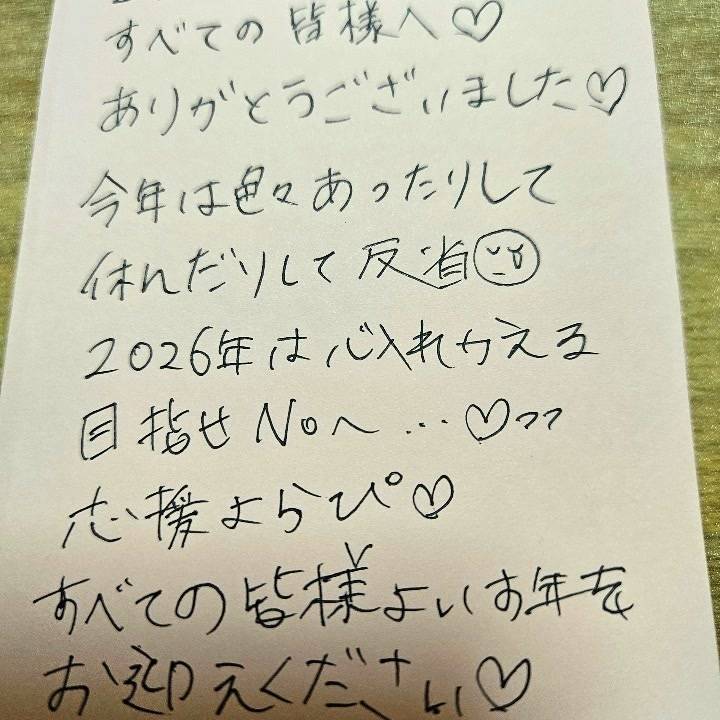 すべての皆様へ♡
ありがとうございました♡
今年は色々あったりして
休んだりして反省
2026年は心入れかえる
目指せNoへ…♡
応援よろぴ♡
すべての皆様よいお年を
お迎えください♡